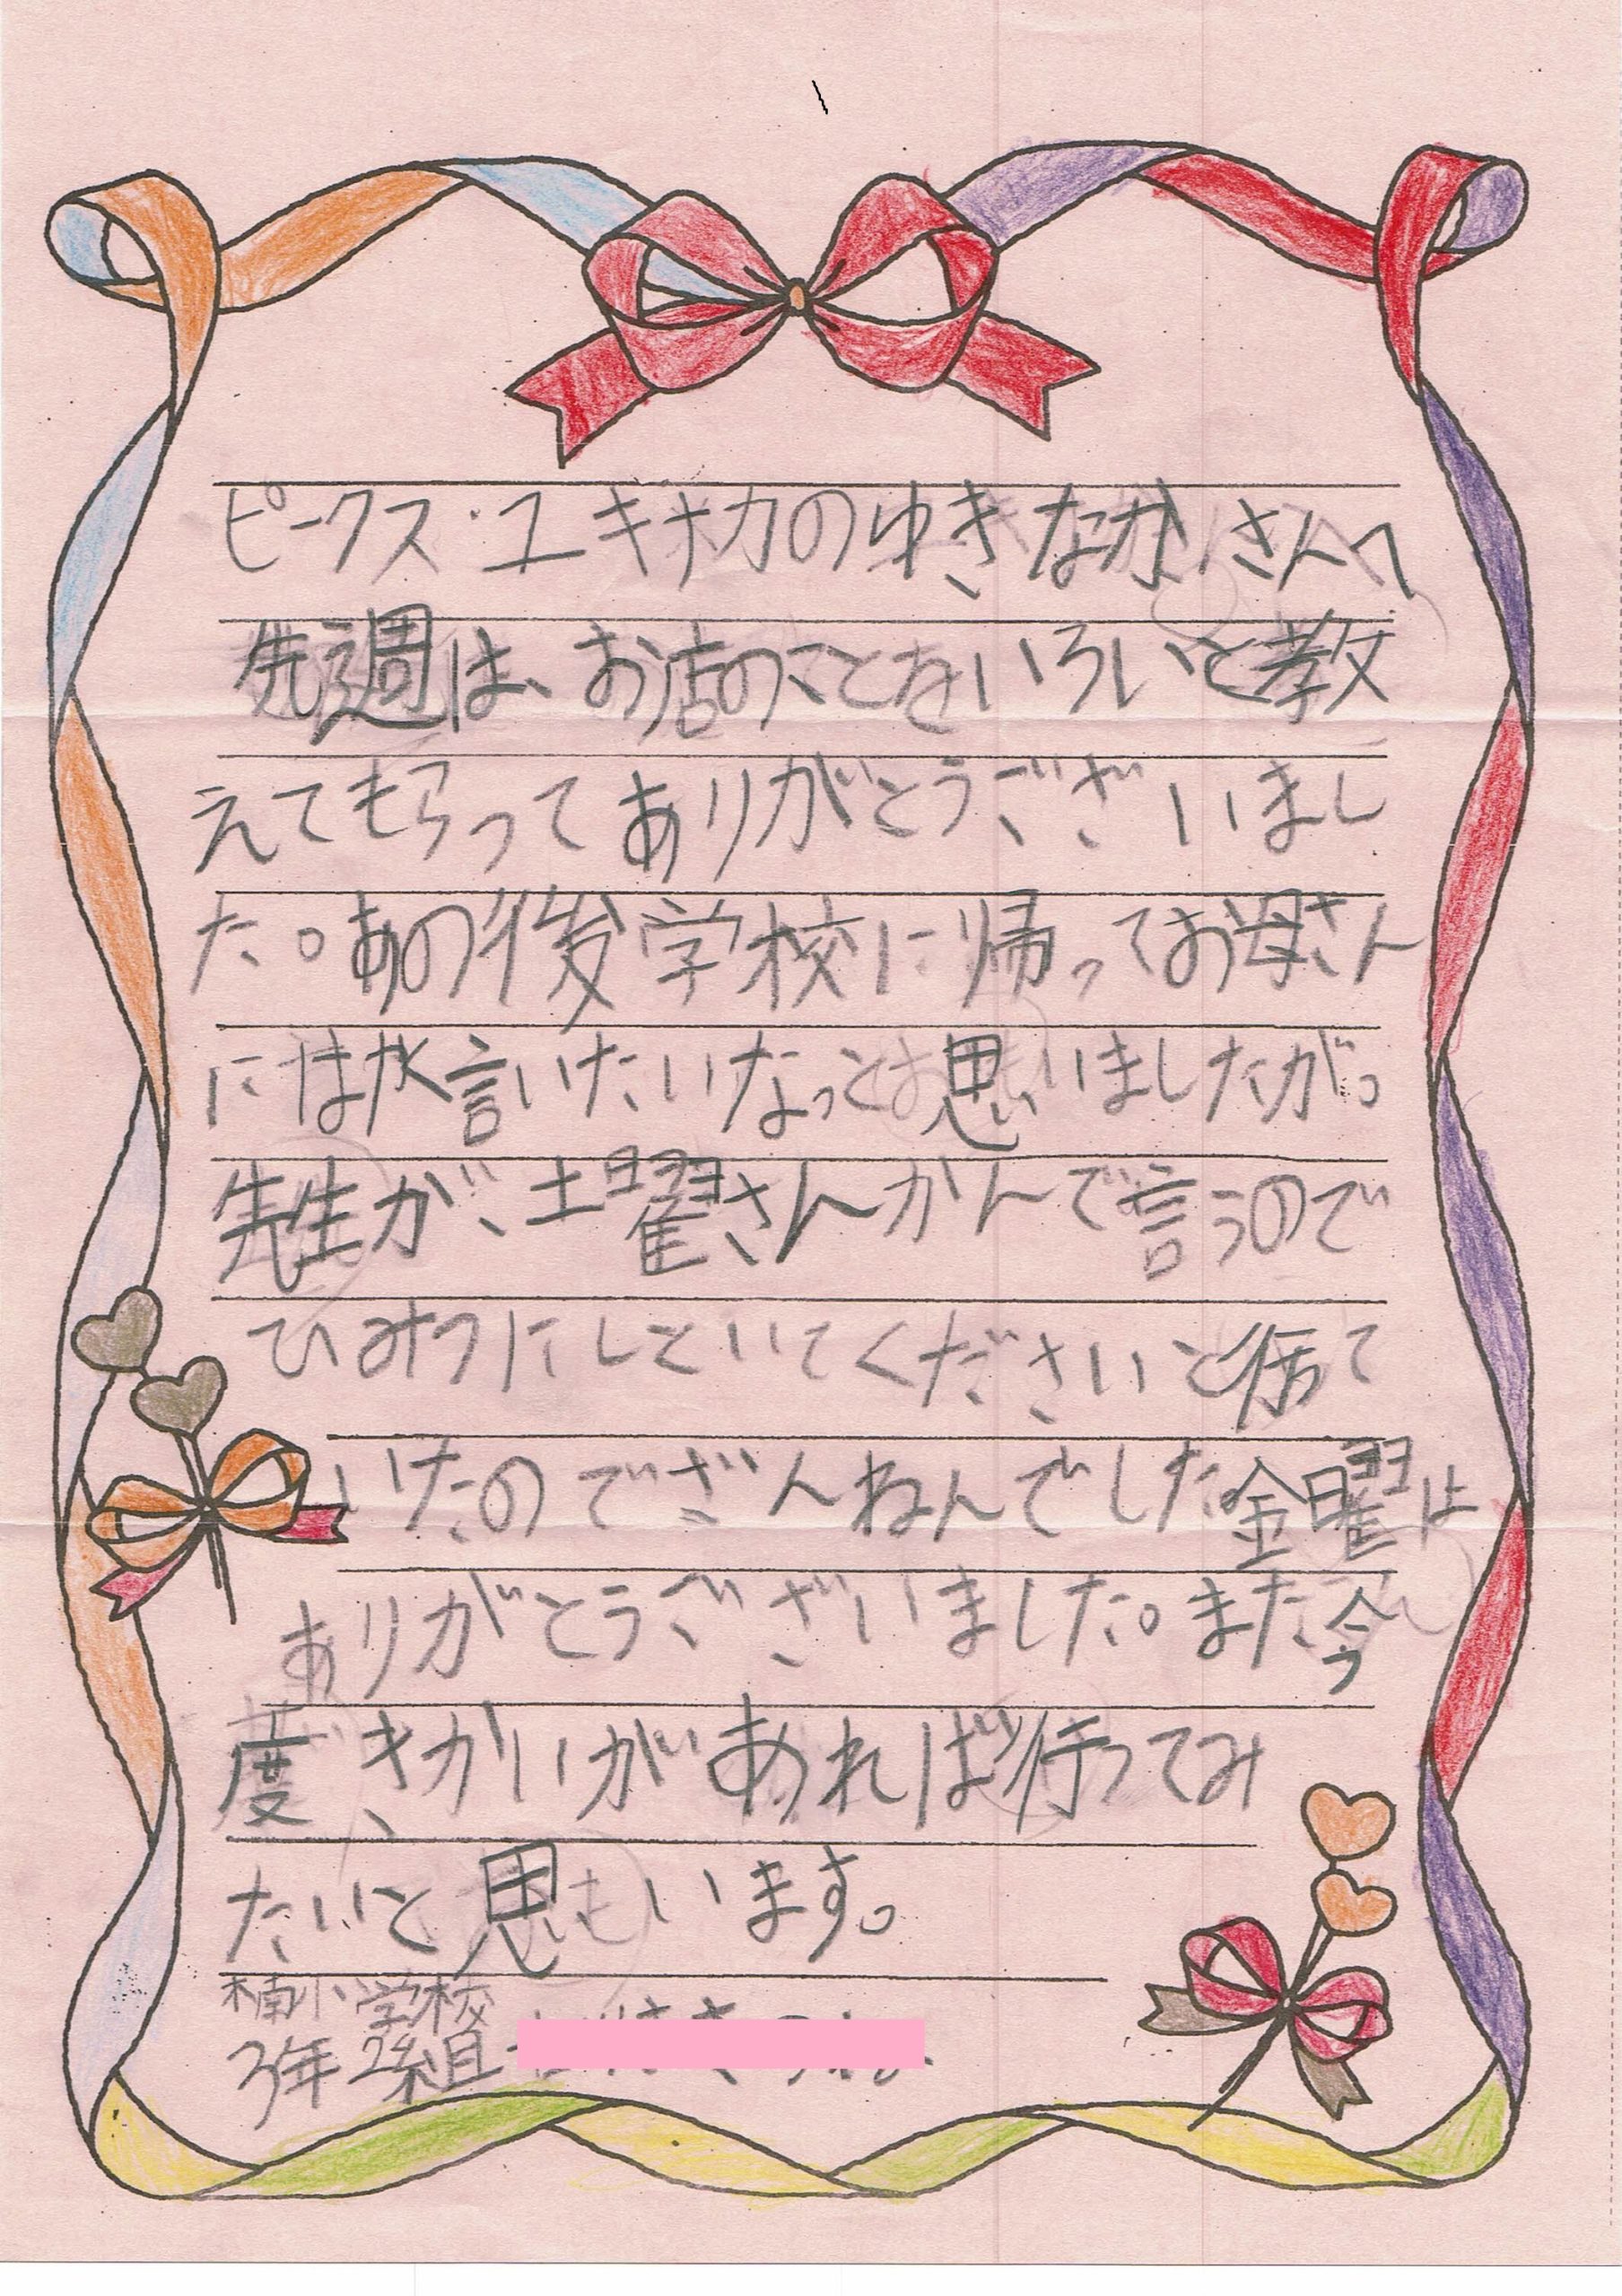 ピークス・ユキナカのゆきなかさんへ
先週は、お店のことをいろいと教
えてもらってありがとうございまし
た。あの後学校に帰ってお母さん
にはか言いたいなっと思いましたが。
先生が、土曜さんかんで言うので
ひみつにしといてくださいと
いたのでざんねんでした金曜は
ありがとうございました。また今
度、きかいがあれば行ってみ
たいと思います。
楠小学校
3年2組